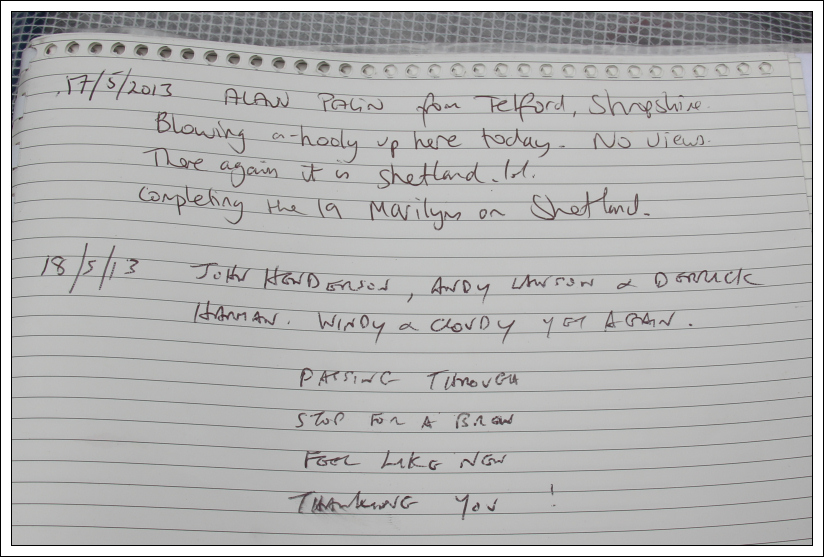 17/5/2013 ALAN PALIN from Telford, Shropshire.
Blowing a-hooly up here today. No views.
There again it is Shetland. lol.
Completing the 19 Marilyns on Shetland.
18/5/13 JOHN HENDERSON, ANDY LAWSON & DERRICK
HARMAN. WINDY & CLOUDY YET AGAIN.
PASSING THROUGH
STOP FOR A BREW
FEEL LIKE NEW
THANKING YOU !